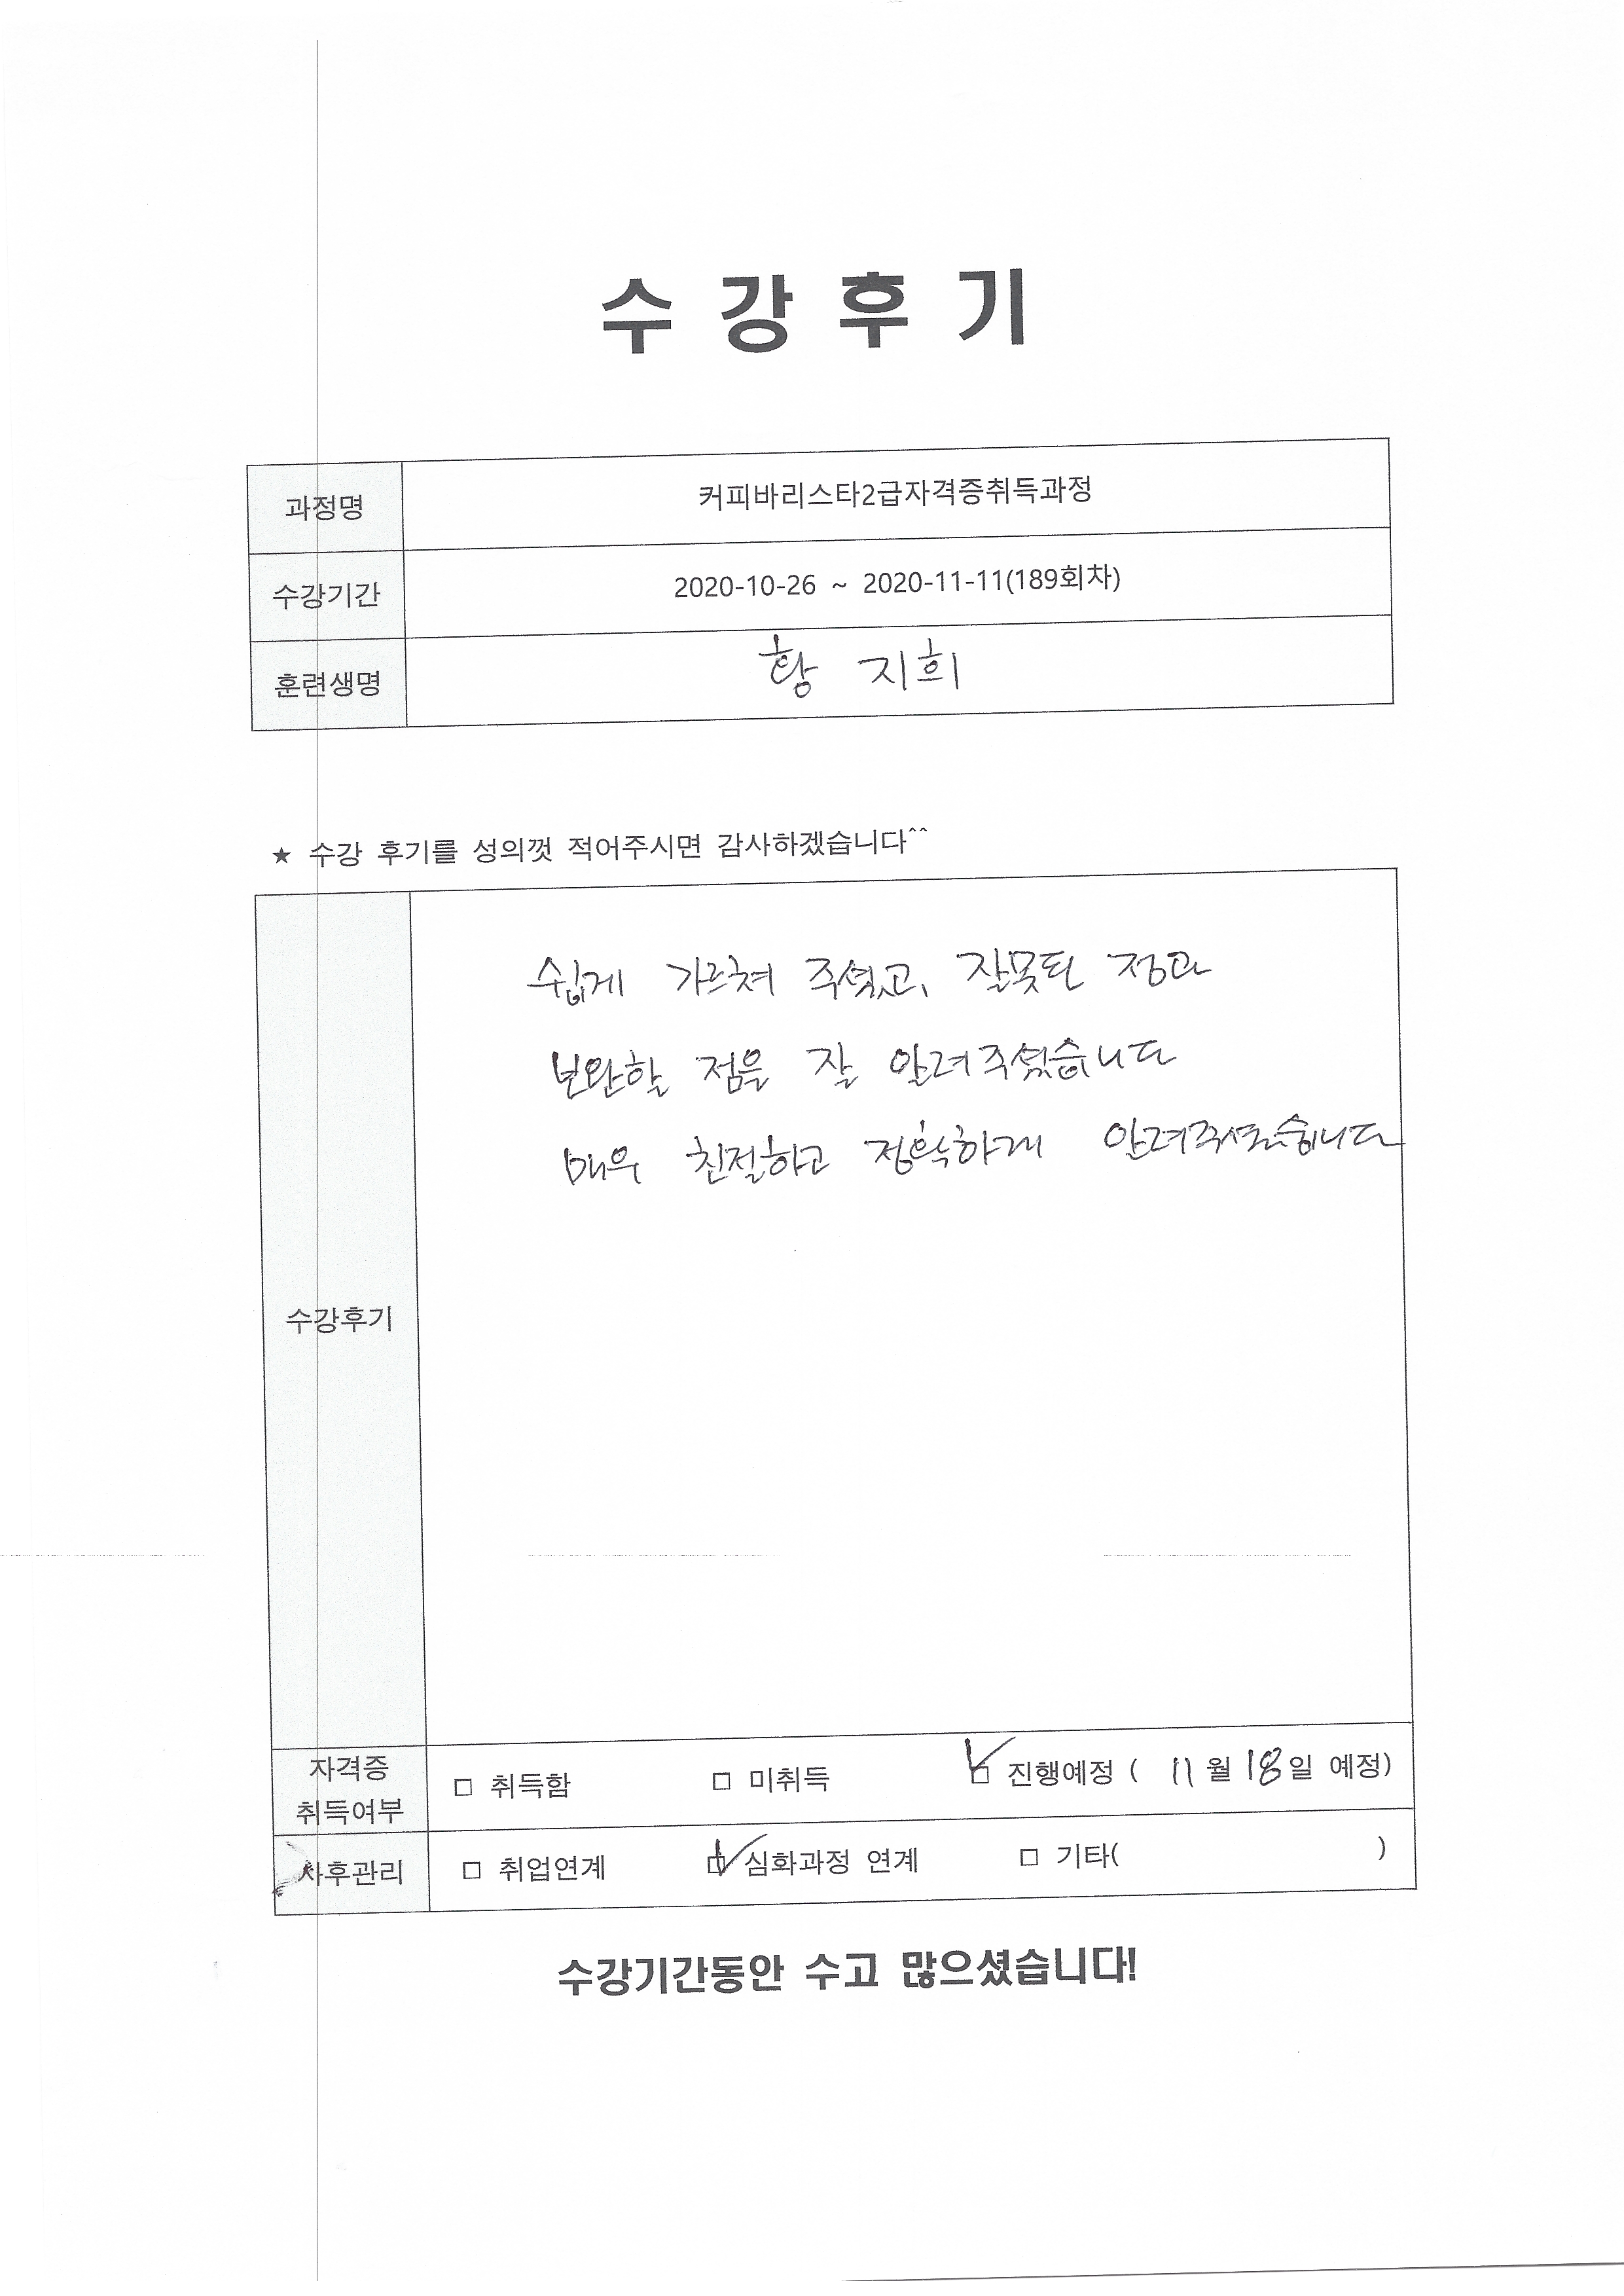 수 강 후 기
과정명 커피바리스타2급자격증취득과정
수강기간 2020-10-26 ~ 2020-11-11(189회차)
훈련생명 황 지희
★ 수강 후기를 성의껏 적어주시면 감사하겠습니다^^
쉽게 가르쳐 주셨고, 잘못된 점과
보완할 점을 잘 알려주셨습니다
매우 친절하고 정확하게 알려주셨습니다
수강후기
자격증 취득여부 □ 취득함 □ 미취득 ☑ 진행예정 ( 11월 18일 예정)
사후관리 □ 취업연계 ☑ 심화과정 연계 □ 기타( )
수강기간동안 수고 많으셨습니다!